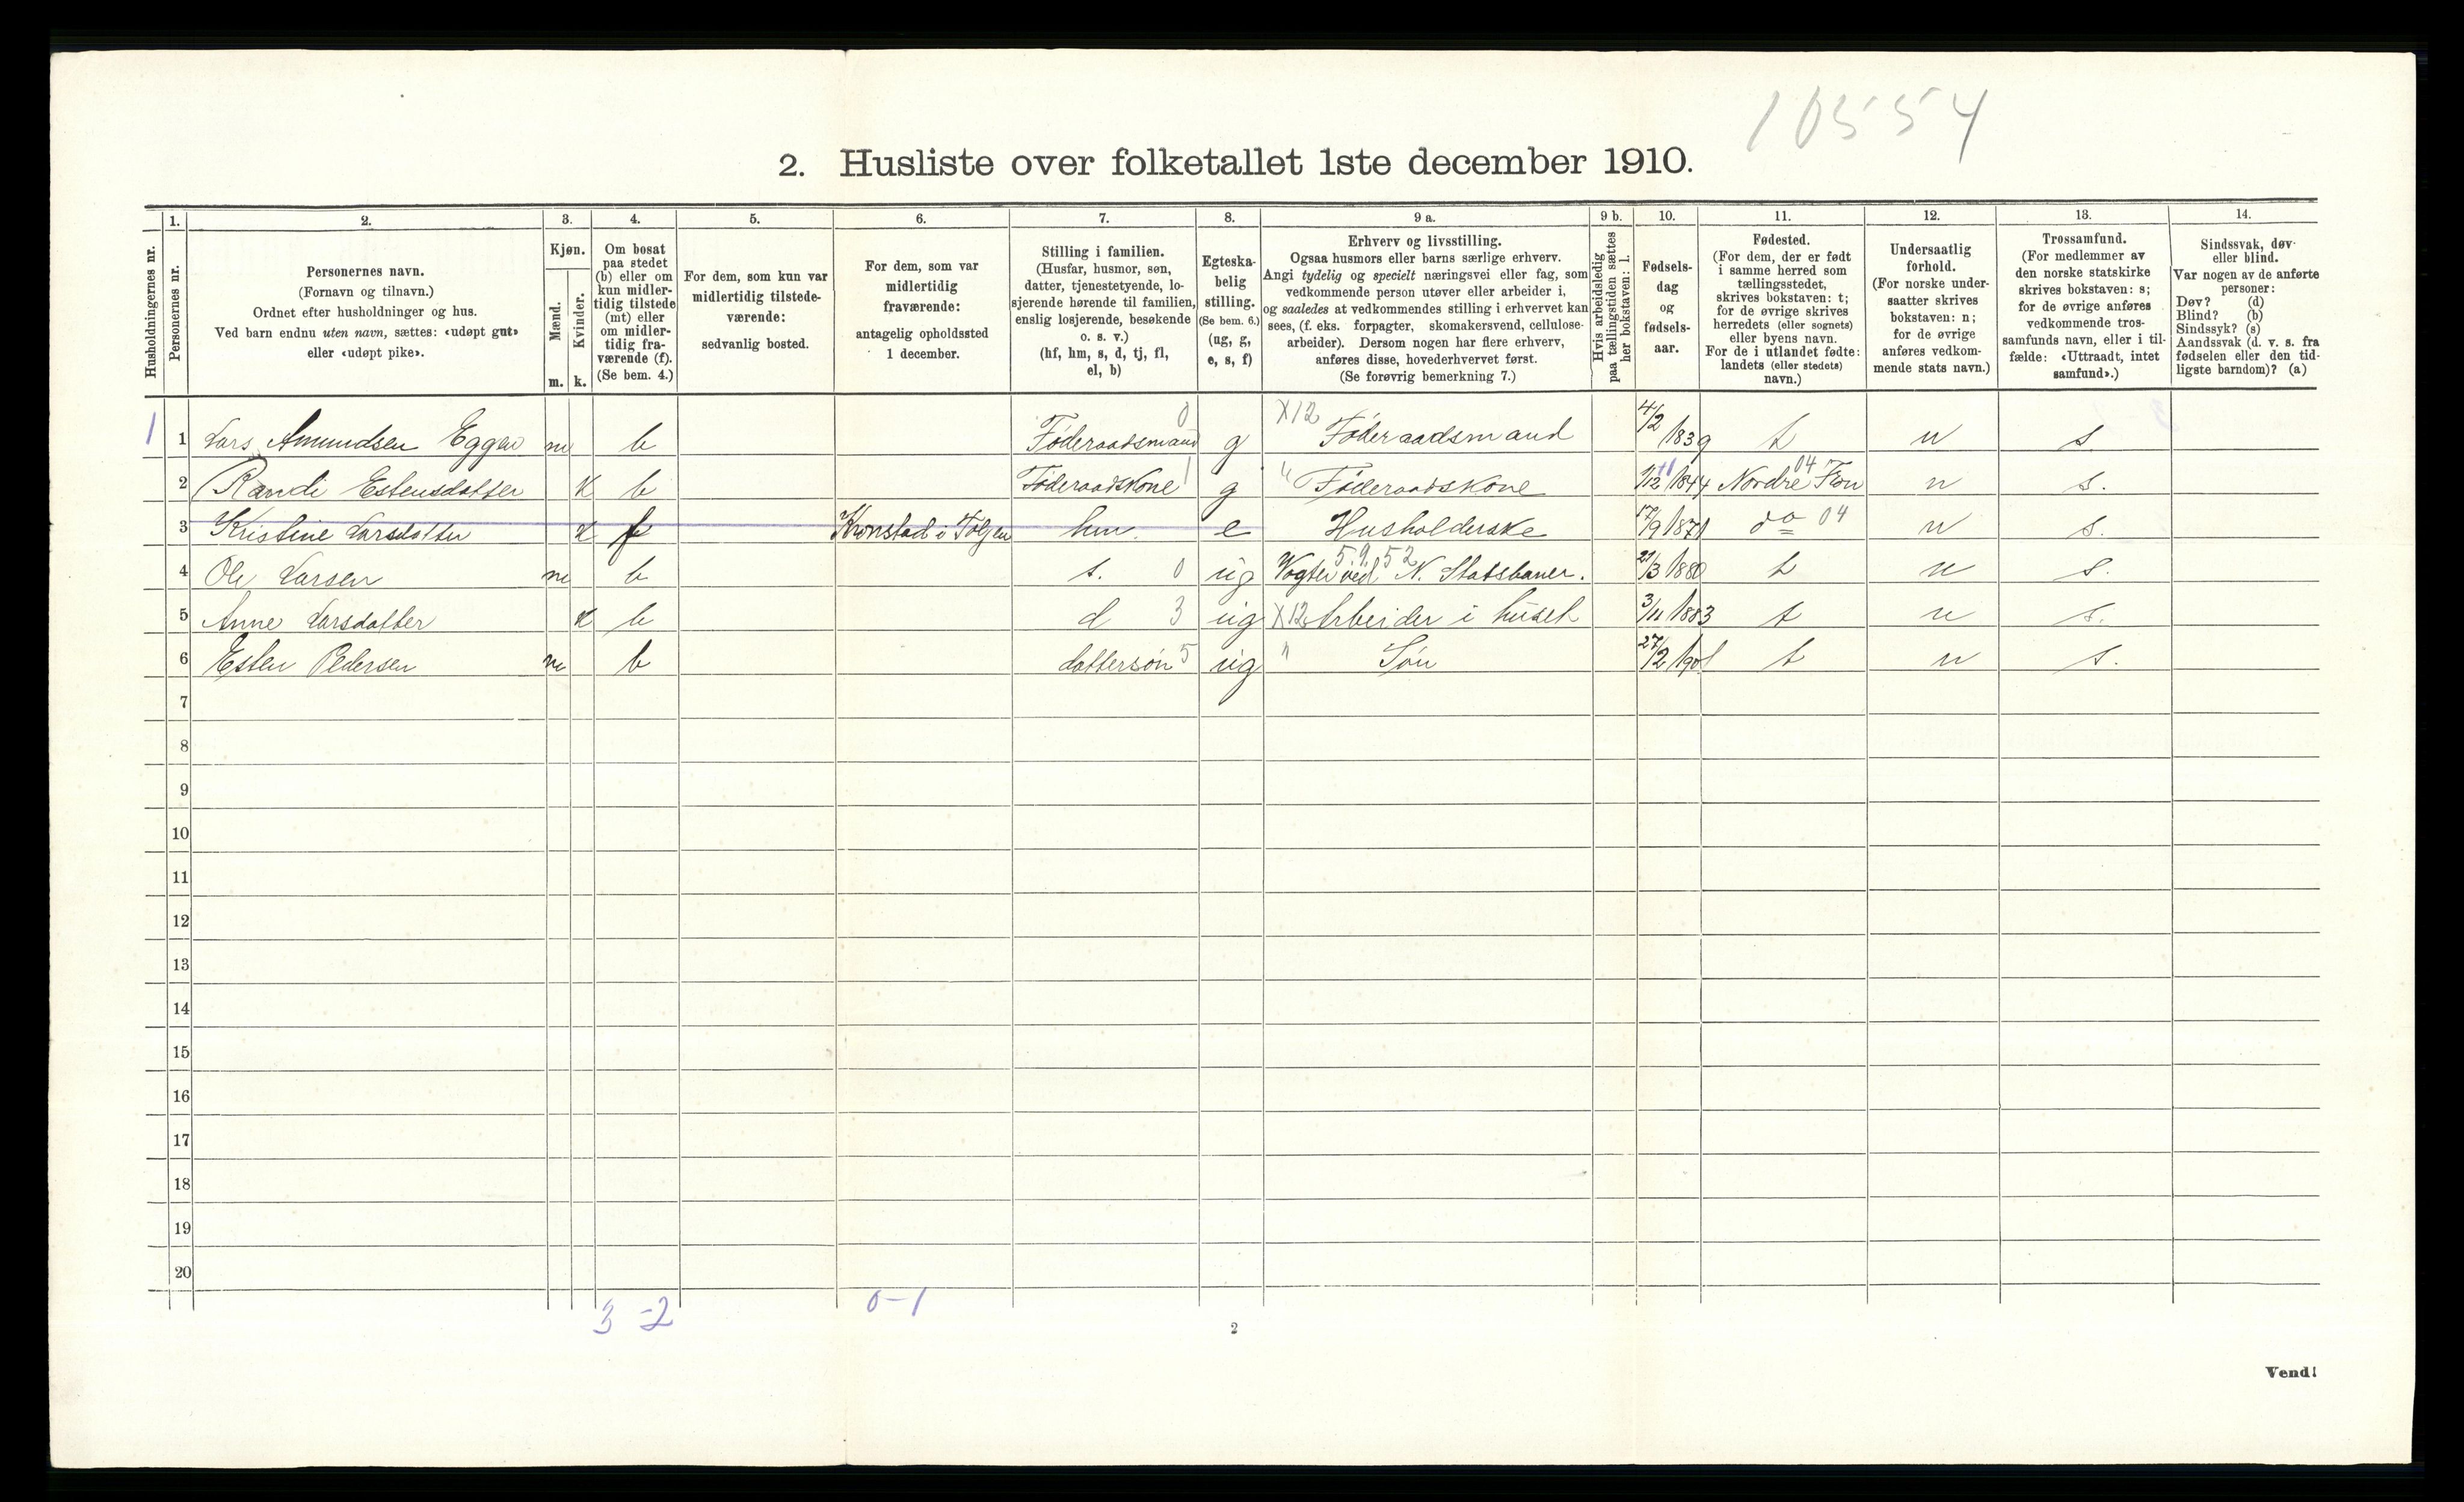 10554
2. Husliste over folketallet 1ste december 1910.
1. 2. 3. 4. 5. 6. 7. 8. 9 a. 9 b. 10. 11. 12. 13. 14.
Husholdningernes nr.
Personernes nr.
Personernes navn.
(Fornavn og tilnavn.)
Ordnet efter husholdninger og hus.
Ved barn endnu uten navn, sættes: «udøpt gut»
eller «udøpt pike».
Kjøn.
Mænd.
Kvinder.
m. k.
Om bosat
paa stedet
(b) eller om
kun midler-
tidig tilstede
(mt) eller
om midler-
tidig fra-
værende (f).
(Se bem. 4.)
For dem, som kun var
midlertidig tilstede-
værende:
sedvanlig bosted.
For dem, som var
midlertidig
fraværende:
antagelig opholdssted
1 december.
Stilling i familien.
(Husfar, husmor, søn,
datter, tjenestetyende, lo-
sjerende hørende til familien,
enslig losjerende, besøkende
o. s. v.)
(hf, hm, s, d, tj, fl,
el, b)
Egteska-
belig
stilling.
(Se bem. 6.)
(ug, g,
e, s, f)
Erhverv og livsstilling.
Ogsaa husmors eller barns særlige erhverv.
Angi tydelig og specielt næringsvei eller fag, som
vedkommende person utøver eller arbeider i,
og saaledes at vedkommendes stilling i erhvervet kan
sees, (f. eks. forpagter, skomakersvend, cellulose-
arbeider). Dersom nogen har flere erhverv,
anføres disse, hovederhvervet først.
(Se forøvrig bemerkning 7.)
Hvis arbeidsledig
paa tællingstiden sættes
her bokstaven: l.
Fødsels-
dag
og
fødsels-
aar.
Fødested.
(For dem, der er født
i samme herred som
tællingsstedet,
skrives bokstaven: t;
for de øvrige skrives
herredets (eller sognets)
eller byens navn.
For de i utlandet fødte:
landets (eller stedets)
navn.)
Undersaatlig
forhold.
(For norske under-
saatter skrives
bokstaven: n;
for de øvrige
anføres vedkom-
mende stats navn.)
Trossamfund.
(For medlemmer av
den norske statskirke
skrives bokstaven: s;
for de øvrige anføres
vedkommende tros-
samfunds navn, eller i til-
fælde: «Uttraadt, intet
samfund».)
Sindssvak, døv-
eller blind.
Var nogen av de anførte
personer:
Døv? (d)
Blind? (b)
Sindssyk? (s)
Aandssvak (d. v. s. fra
fødselen eller den tid-
ligste barndom)? (a)
1 1 Lars Amundsen Eggen m b Føderaadsmand 0 g X12 Føderaadsmand 4/2 1839 t n s.
2 Randi Estensdatter k b Føderaadskone 1 g " Føderaadskone 1/12 1844 Nordre Fron 04 n s.
3 Kristine Larsdatter k f Kronstad i Tolgen hm. e Husholderske 17/9 1871 do 04 n s.
4 Ole Larsen m b s. 0 ug Vogter ved N. Statsbaner. 59.52 21/3 1880 t n s.
5 Anne Larsdatter k b d 3 ug X12 Arbeider i huset 3/11 1883 t n s.
6 Esten Pedersen m b dattersøn 5 ug " Søn 27/2 1901 t n s.
7
8
9
10
11
12
13
14
15
16
17
18
19
20
3 - 2 0 - 1
2
Vend!